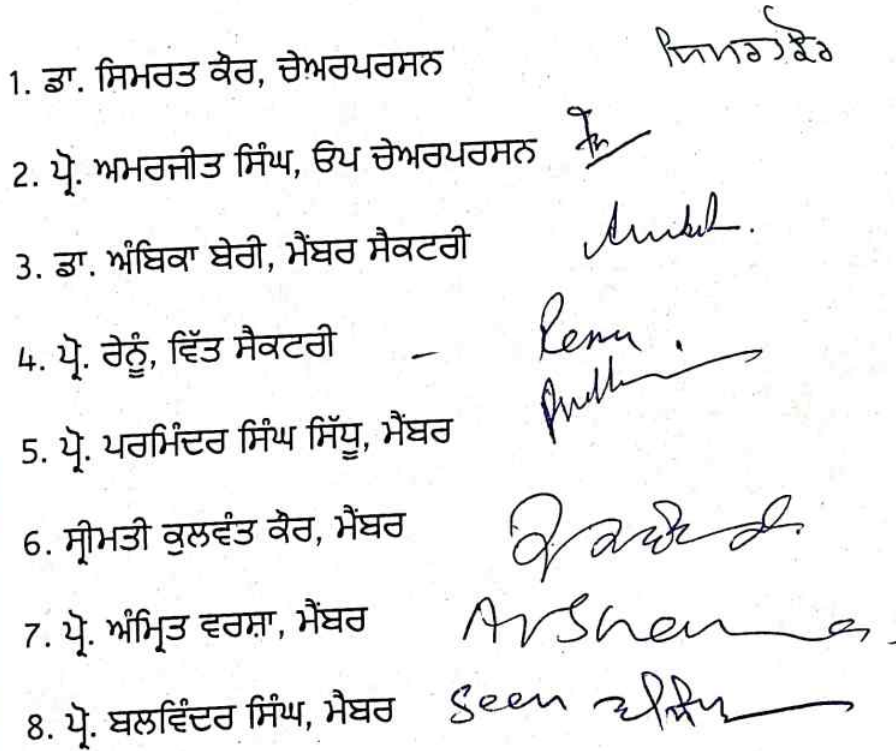 1. ਡਾ. ਸਿਮਰਤ ਕੌਰ, ਚੇਅਰਪਰਸਨ
2. ਪ੍ਰੋ. ਅਮਰਜੀਤ ਸਿੰਘ, ਓਪ ਚੇਅਰਪਰਸਨ
3. ਡਾ. ਅੰਬਿਕਾ ਬੇਰੀ, ਮੈਂਬਰ ਸੈਕਟਰੀ
4. ਪ੍ਰੋ. ਰੇਨੂੰ, ਵਿੱਤ ਸੈਕਟਰੀ - Renu.
5. ਪ੍ਰੋ. ਪਰਮਿੰਦਰ ਸਿੰਘ ਸਿੱਧੂ, ਮੈਂਬਰ
6. ਸ੍ਰੀਮਤੀ ਕੁਲਵੰਤ ਕੌਰ, ਮੈਂਬਰ
7. ਪ੍ਰੋ. ਅੰਮ੍ਰਿਤ ਵਰਸ਼ਾ, ਮੈਂਬਰ
8. ਪ੍ਰੋ. ਬਲਵਿੰਦਰ ਸਿੰਘ, ਮੈਬਰ Seen